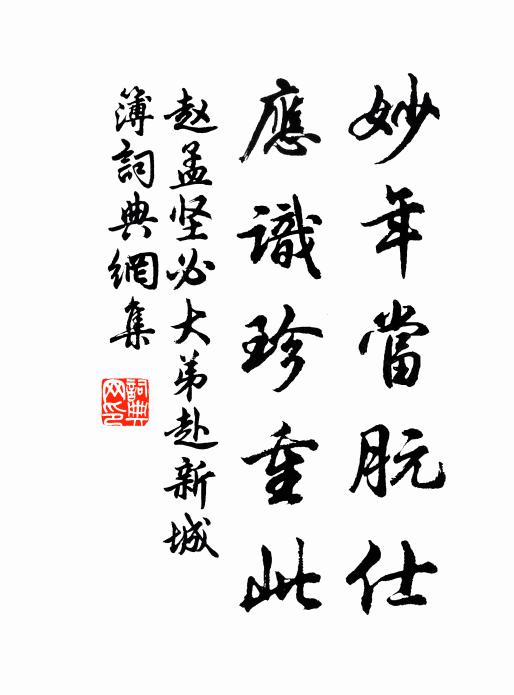 妙年當朊仕
應識珍重此
赵孟坚必大弟赴新城
簿詞典網集
詞典網印